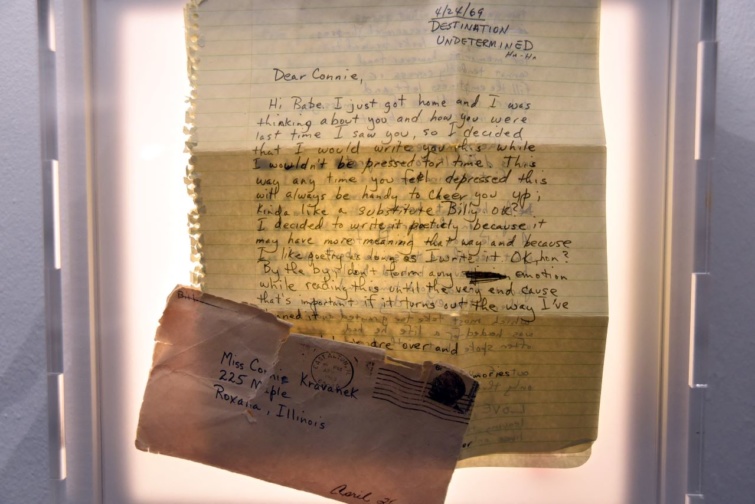 4/24/69
DESTINATION
UNDETERMINED
Ha-Ha
Dear Connie,
Hi Babe. I just got home and I was
thinking about you and how you were
last time I saw you, so I decided
that I would write you this while
I wouldn't be pressed for time. This
way any time you feel depressed this
will always be handy to cheer you up;
kinda like a substitute Billy OK?
I decided to write it poeticly because it
may have more meaning that way and because
I like poetry as long as I write it OK, hon?
By the by, don't form any emotion
while reading this until the very end cause
that's important if it turns out the way I've
it
are over and
Miss Connie Kravanek
225 Maple
Roxana, Illinois
April